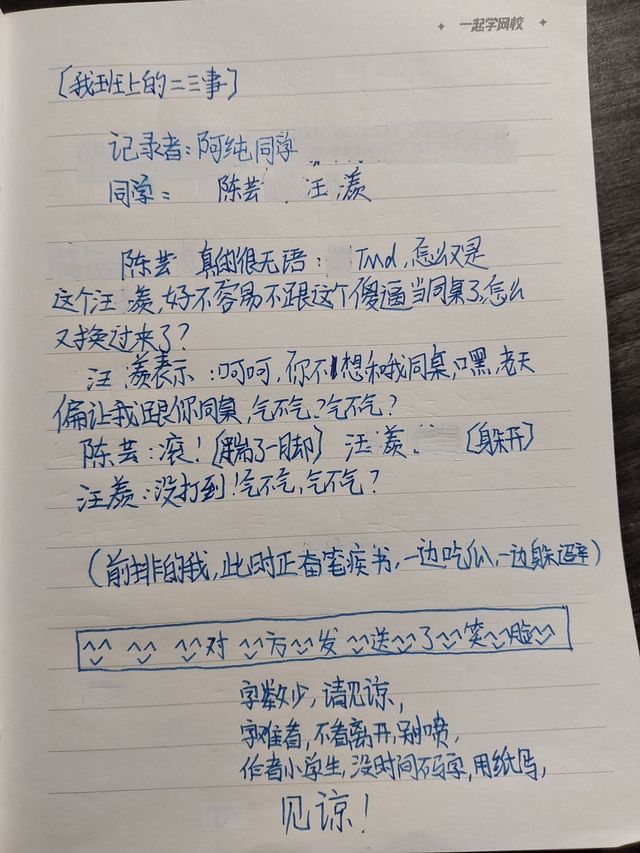 一起学网校
[我班上的二三事]
记录者:阿纯同学
同学: 陈芸 汪羡
陈芸 真的很无语: Tmd,怎么又是
这个汪羡,好不容易不跟这个傻逼当同桌了,怎么
又换过来了?
汪羡表示:呵呵,你不想和我同桌,嘿,老天
偏让我跟你同桌,气不气?气不气?
陈芸:滚![踹了一脚] 汪羡: [躲开]
汪羡:没打到!气不气,气不气?
(前排的我,此时正奋笔疾书,一边吃瓜,一边躲避)
对方发送了笑脸
字数少,请见谅,
字难看,不看离开,别喷,
作者小学生,没时间码字,用纸写,
见谅!